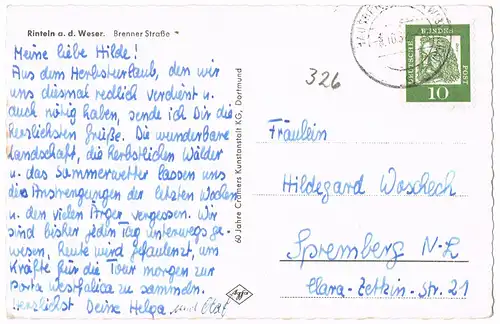 Rinteln a. d. Weser. Brenner Straße
Meine liebe Hilde!
Aus dem Herbsturlaub, den wir
uns diesmal redlich verdient u.
auch nötig haben, sende ich Dir die
herzlichsten Grüße. Die wunderbare
Landschaft, die herbstlichen Wälder
u. das Sommerwetter lassen uns
die Anstrengungen der letzten Wochen
u. den vielen Ärger vergessen. Wir
sind bisher jeden Tag unterwegs ge-
wesen. Heute wird gefaulenzt, um
Kräfte für die Tour morgen zur
Porta Westfalica zu sammeln.
Herzlichst Deine Helga und Olaf
60 Jahre Cramers Kunstanstalt KG, Dortmund
Agfa
326
DEUTSCHE BUNDESPOST
10
Fräulein
Hildegard Woschech
Spremberg N-L
Clara-Zetkin-Str. 21